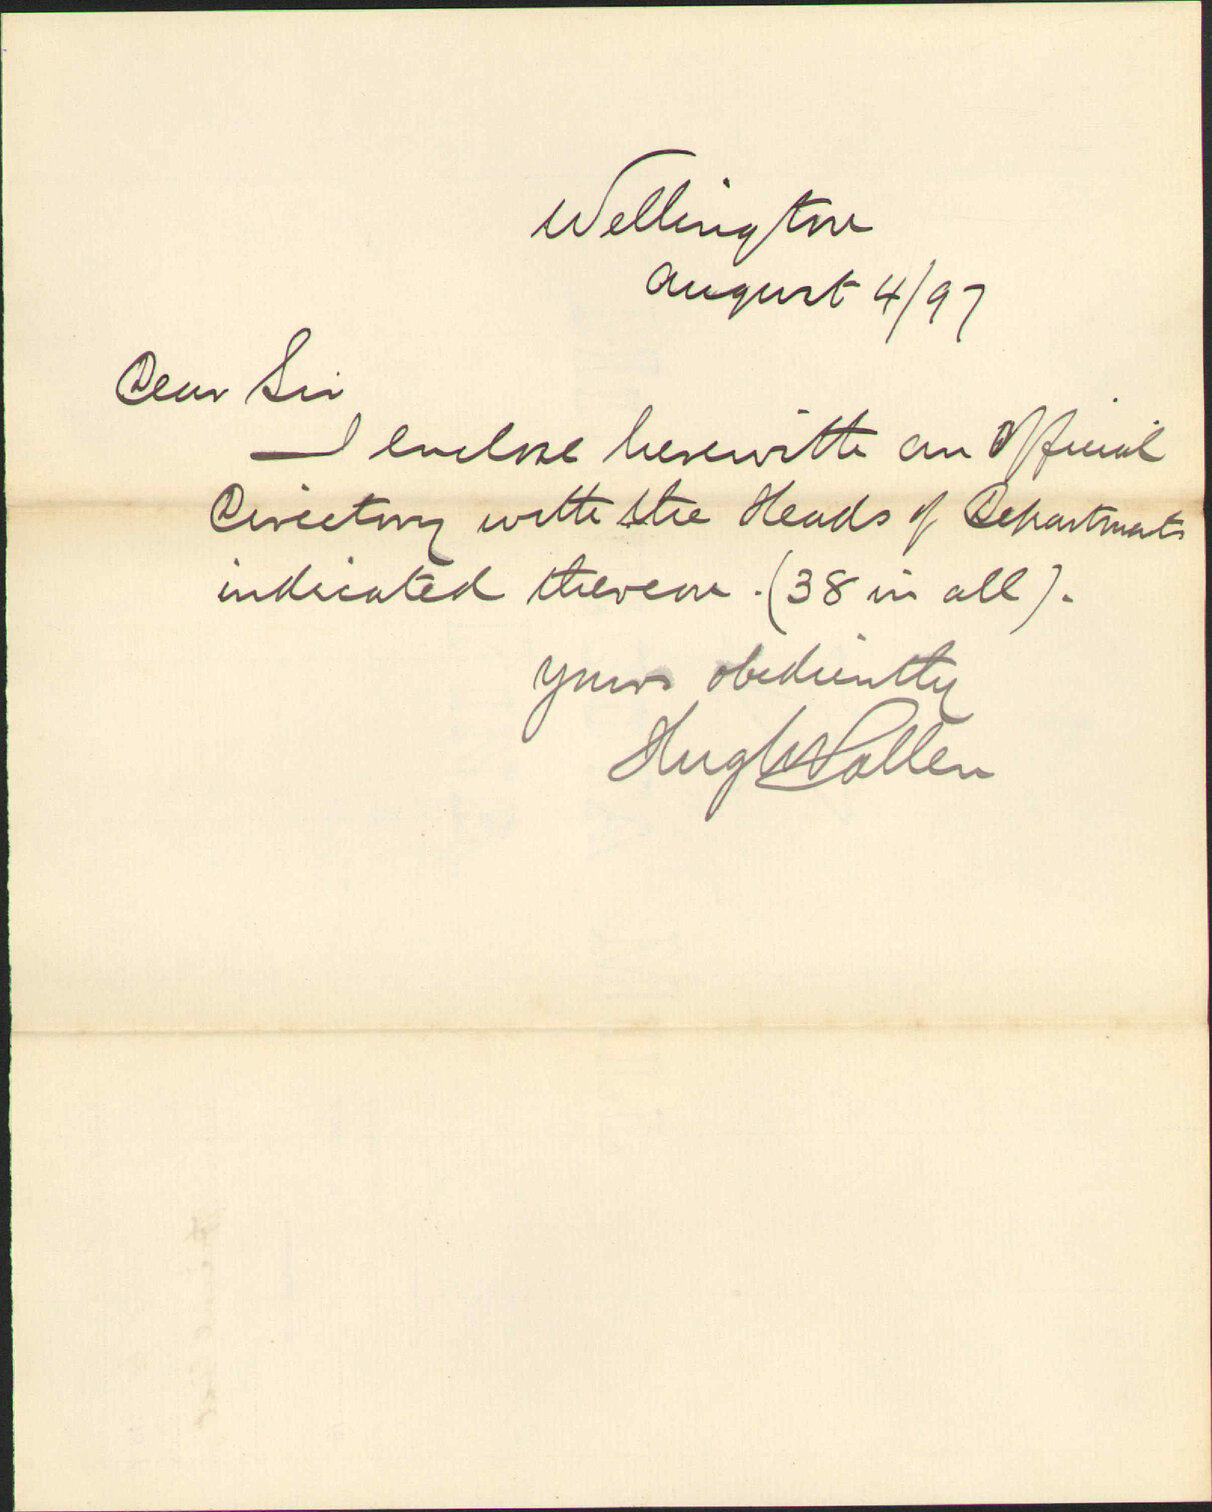 Wellington
August 4/97
Dear Sir
I enclose herewith an Official
Directory with the Heads of Departments
indicated thereon. (38 in all).
Yours obediently
Hugh Pollen